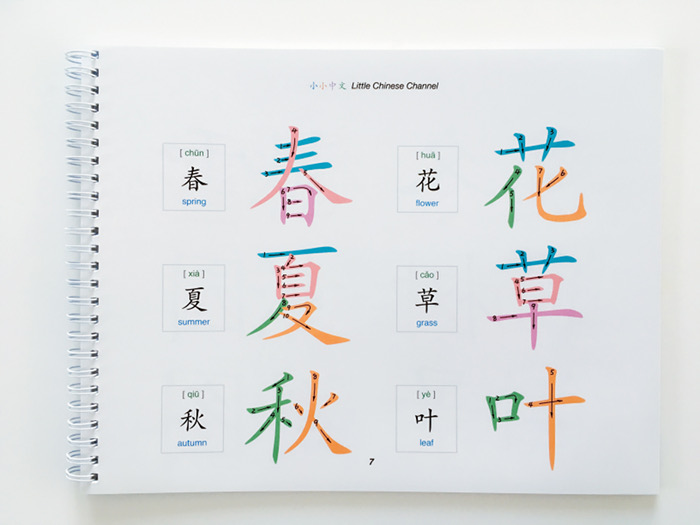 小小中文 Little Chinese Channel
[ chūn ]
春
spring
春
[ huā ]
花
flower
花
[ xià ]
夏
summer
夏
[ cǎo ]
草
grass
草
[ qiū ]
秋
autumn
秋
[ yè ]
叶
leaf
叶
7